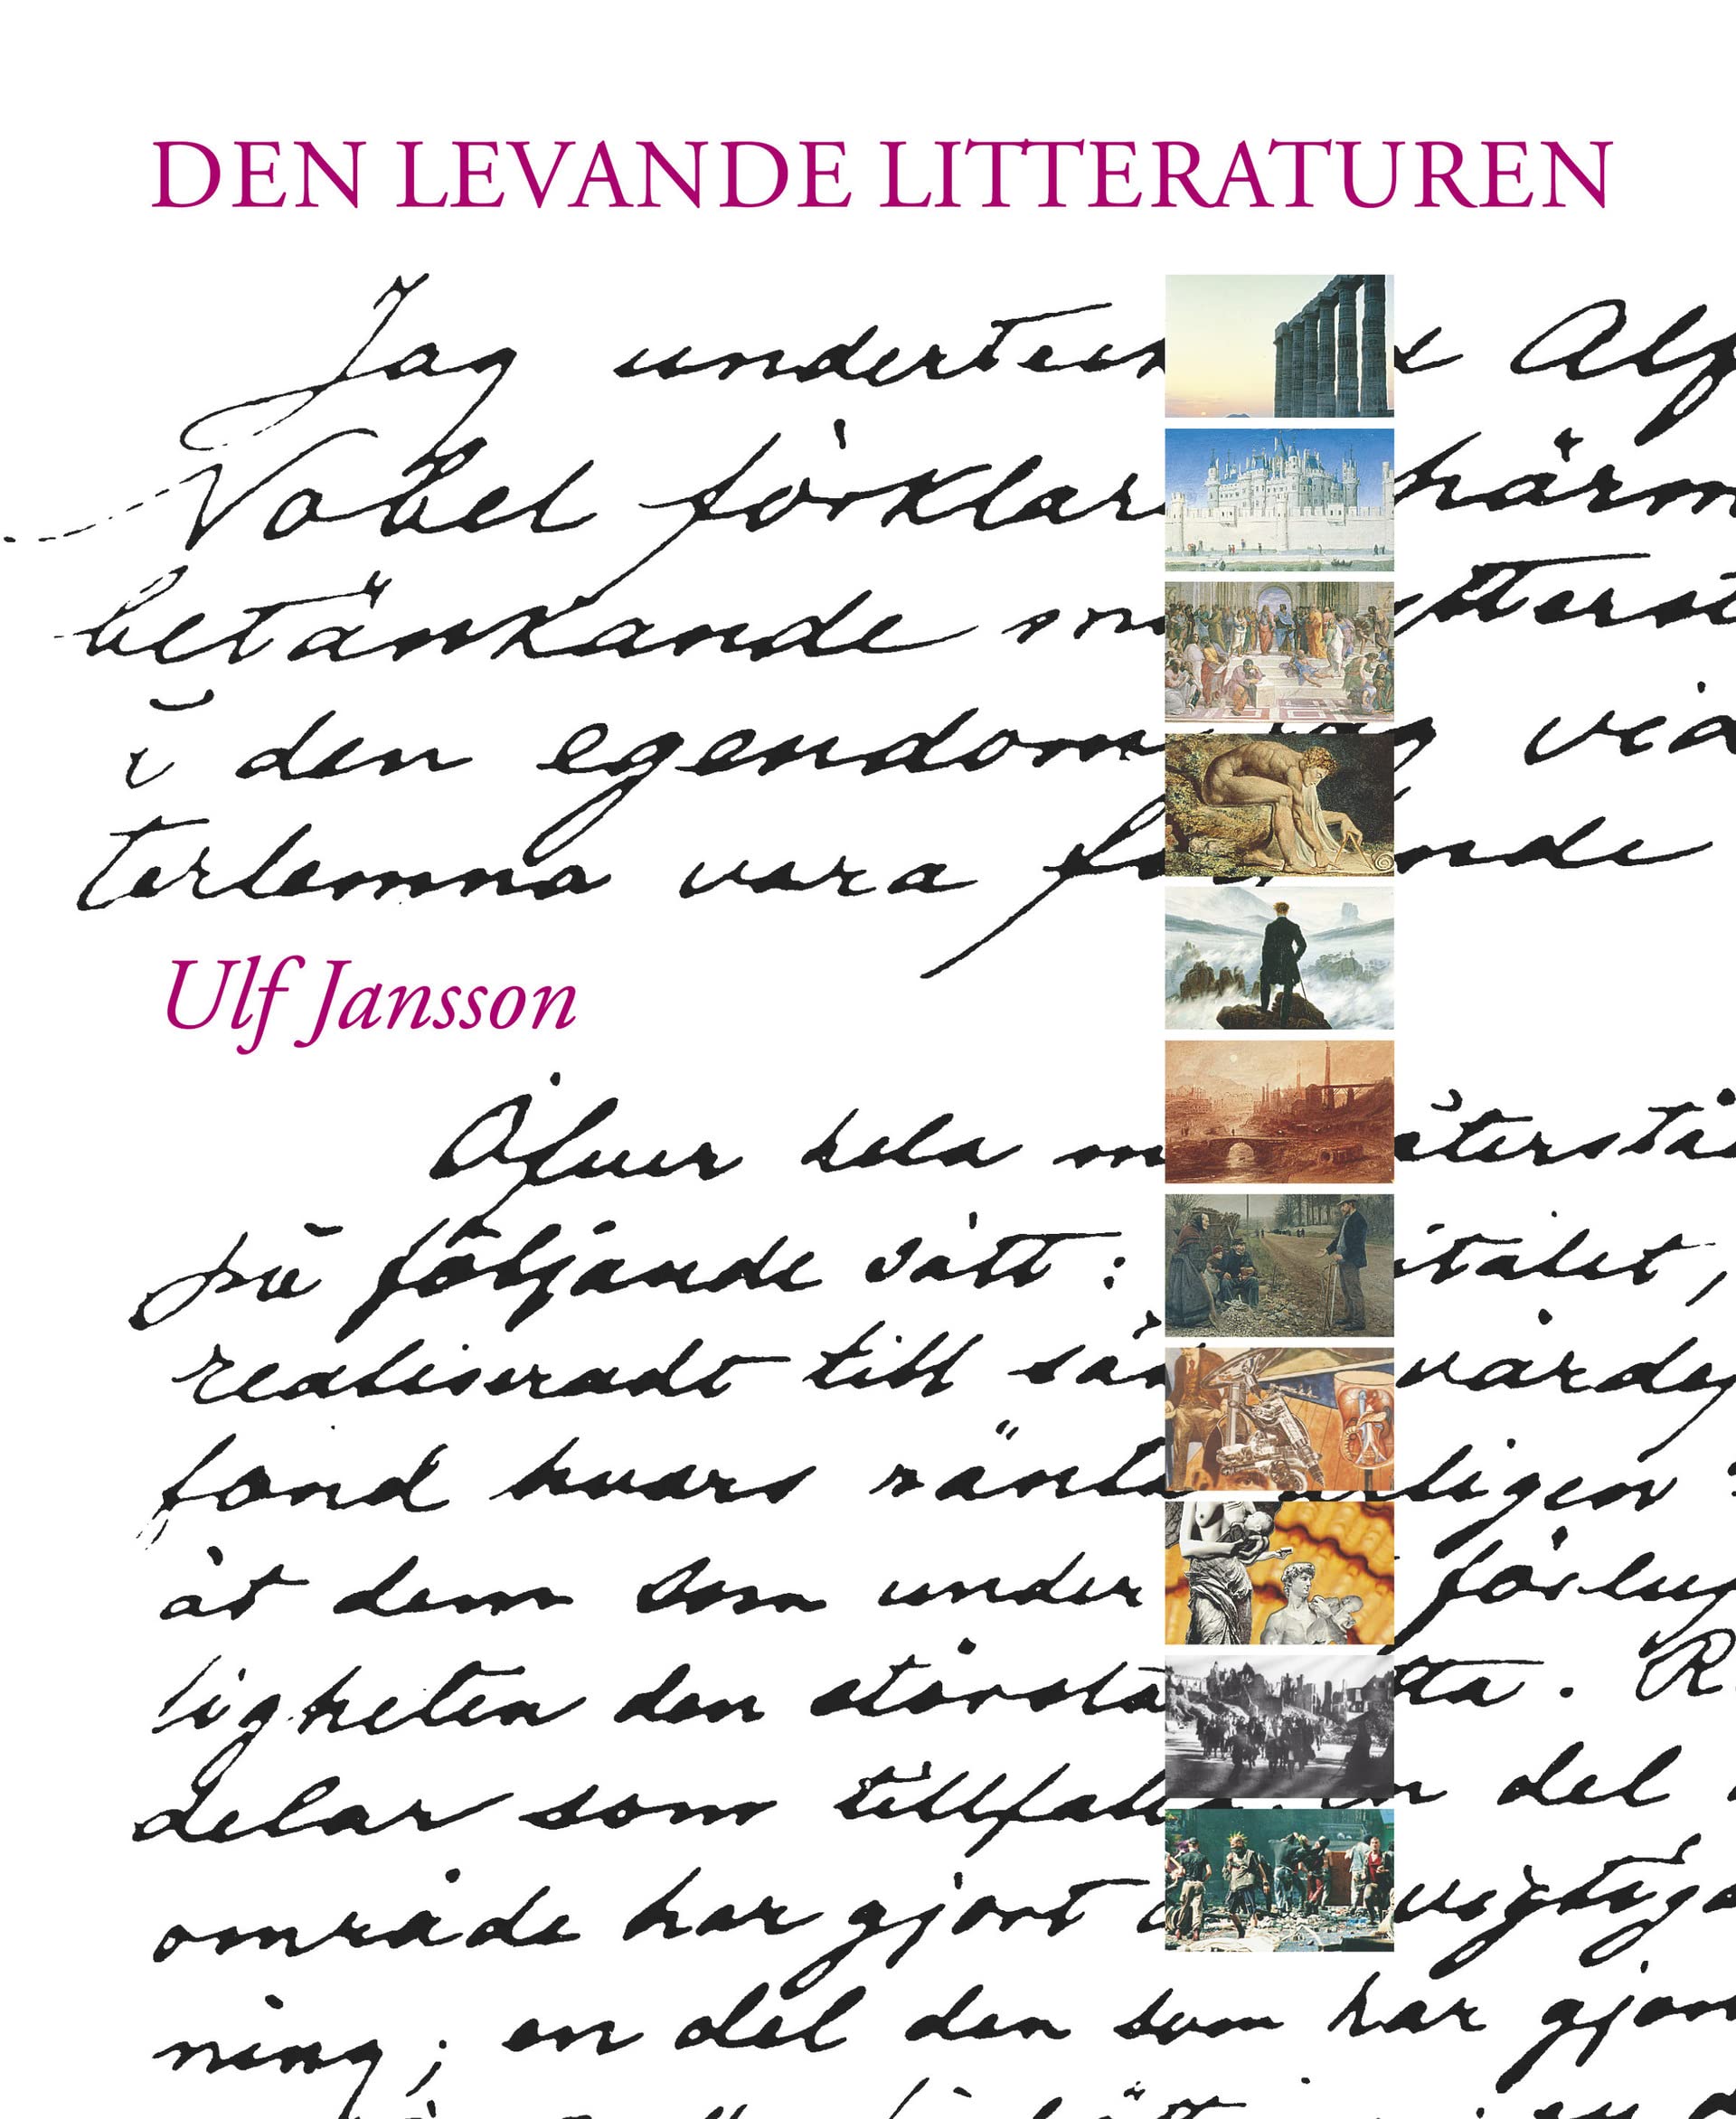 DEN LEVANDE LITTERATUREN
Jag underteck d Alf
Nobel förklar härm
betänkande m ytterst
i den egendom jag vid
terlemna vara f nde
Ulf Jansson
Öfver hela m återstå
på följande sätt: italet,
realiseradt till sä värdep
fond hvars ränta rligen
åt dem som under förlup
ligheten den största tta. R
delar som tillfalla: en del
område har gjort vigtiga
ning; en del den som har gjor